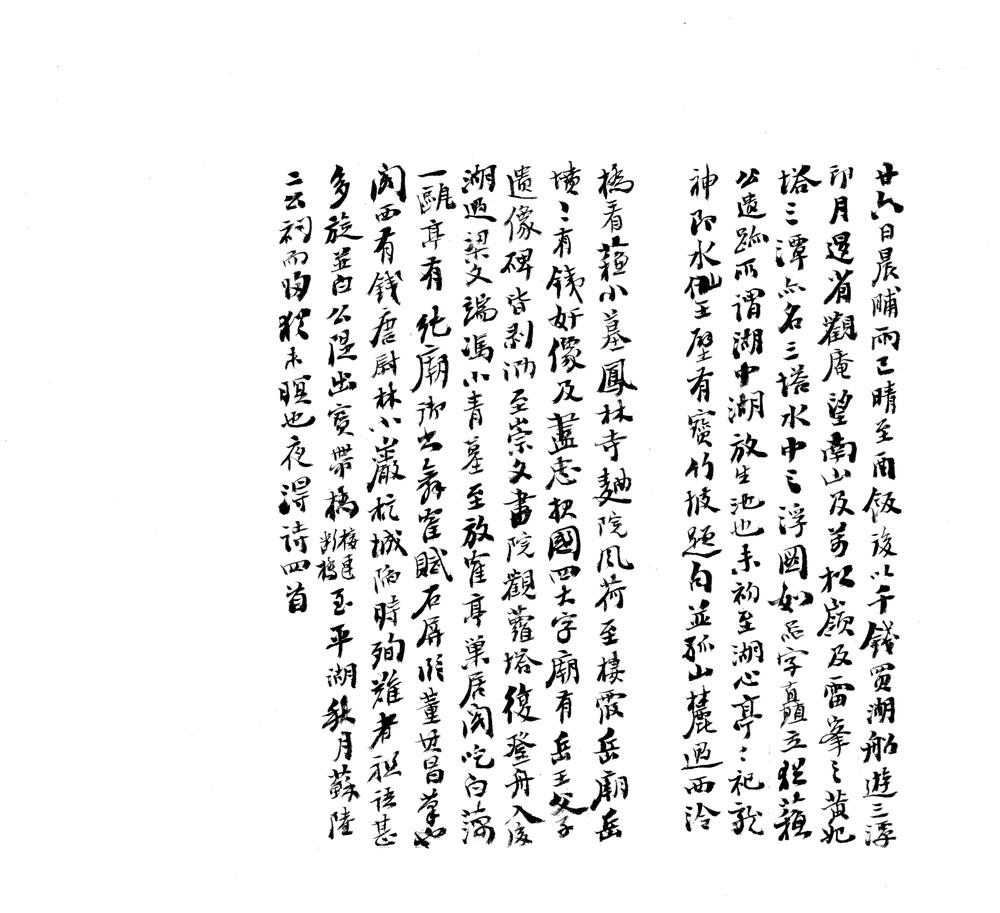 廿六日晨晡雨已晴至酉飯後以千錢買湖船遊三潭
印月退省觀庵望南山及万松嶺及雷峯之黃妃
塔三潭亦名三塔水中之浮圖如品字矗立猶蘇
公遺跡所謂湖中湖放生池也未初至湖心亭亭祀龍
神即水仙王壁有寶竹坡題句並孤山麓過西泠
橋看蘇小墓鳳林寺麯院風荷至棲霞岳廟岳
墳墳有鐵奸像及盡忠報國四大字廟有岳王父子
遺像碑皆剥泐至崇文書院觀蘿塔復登舟入後
湖過梁文端馮小青墓至放鶴亭巢居閣吃白藕
一甌亭有純廟御書舞鶴賦石屏臨董其昌筆也
閣西有錢唐尉林小巖杭城陷時殉難者祖語甚
多旋並白公隄出寶帶橋接連斷橋至平湖秋月蘇陸
二公祠而回猶未暝也夜得詩四首